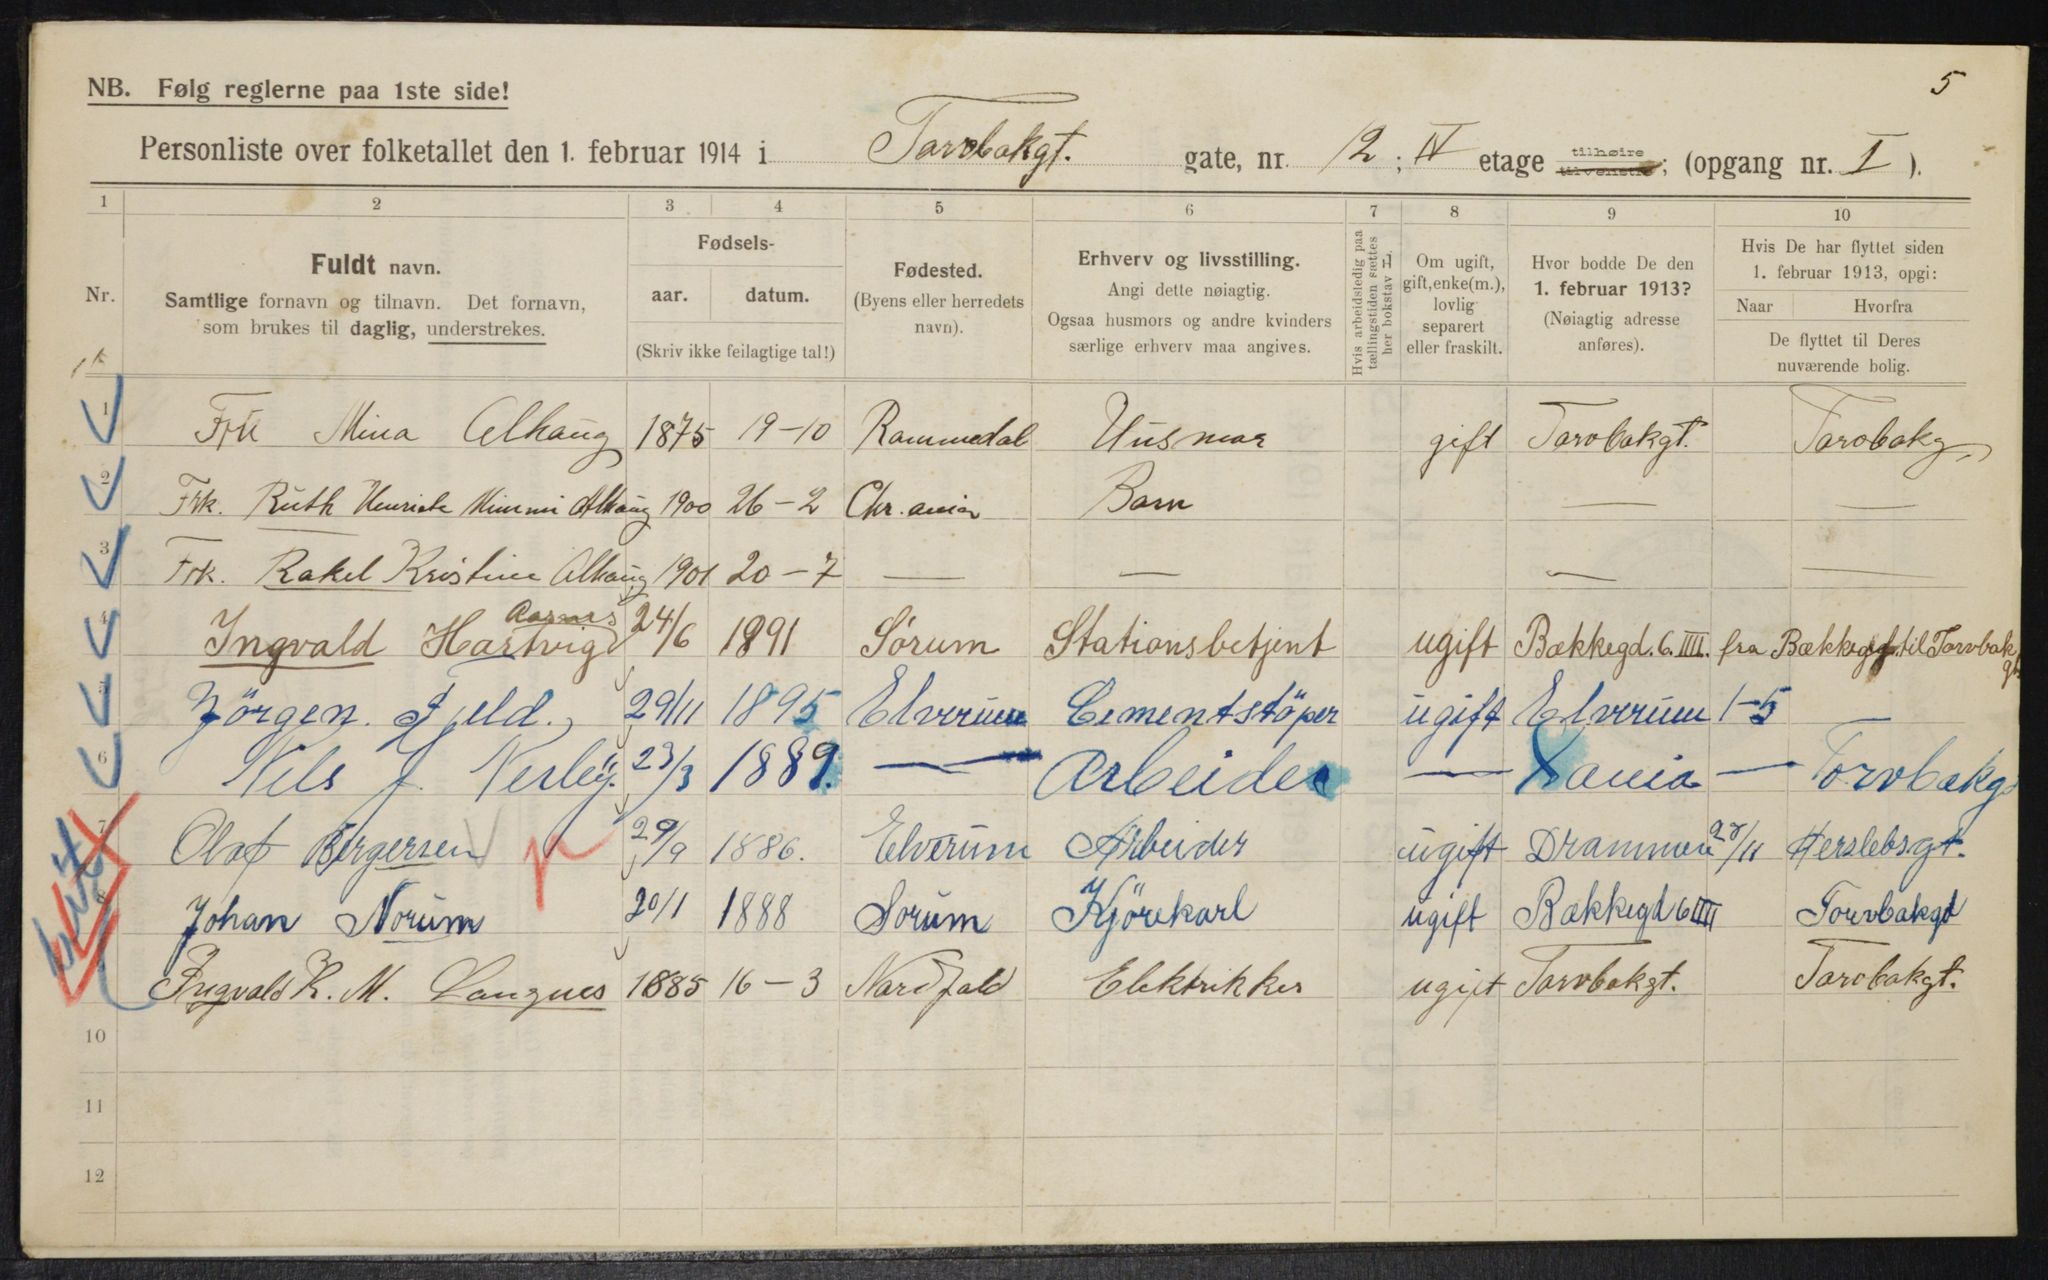 5
NB. Følg reglerne paa 1ste side!
Personliste over folketallet den 1. februar 1914 i Torvbakgt. gate, nr. 12; IV etage tilhøire tilvenstre; (opgang nr. I).
1 2 3 4 5 6 7 8 9 10
Nr.
Fuldt navn.
Samtlige fornavn og tilnavn. Det fornavn,
som brukes til daglig, understrekes.
Fødsels-
aar. datum.
(Skriv ikke feilagtige tal!)
Fødested.
(Byens eller herredets
navn).
Erhverv og livsstilling.
Angi dette nøiagtig.
Ogsaa husmors og andre kvinders
særlige erhverv maa angives.
Hvis arbeidsledig paa
tællingstiden sættes
her bokstav L.
Om ugift,
gift, enke(m.),
lovlig
separert
eller fraskilt.
Hvor bodde De den
1. februar 1913?
(Nøiagtig adresse
anføres).
Hvis De har flyttet siden
1. februar 1913, opgi:
Naar Hvorfra
De flyttet til Deres
nuværende bolig.
1 Frü Mina Alhaug 1875 19-10 Rammedal Husmor gift Torvbakgt. Torvbakg.
2 Frk. Ruth Henriete Mimmi Alhaug 1900 26-2 Chr.ania Barn — —
3 Frk. Rakel Kristine Alhaug 1901 20-7 — — — —
4 Ingvald Hartvig Aarnes 24/6 1891 Sörum Stationsbetjent ugift Bækkegd. 6. IIII. fra Bækkegd. til Torvbakgt
5 Jörgen. Fjeld. 29/11 1895 Elverum Cementstöper ugift Elverum 1-5 —
6 Nils J. Nerbÿ. 23/3 1889. — Arbeider — Xania — Torvbakg
7 Olaf Birgersen 29/9 1886. Elverum Arbeider ugift Drammen 28/11 Herslebsgt.
8 Johan Norum 20/1 1888 Sorum Kjörekarl ugift Bækkegd 6 IIII Torvbakgt
9 Ingvald K. M. Langnes 1885 16-3 Nordfold Elektrikker ugift Torvbakgt. Torvbakgt.
10
11
12